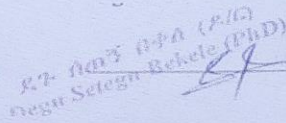 ደጉ ሰጠኝ በቀለ (ዶ/ር)
Degu Setegn Bekele (PhD)